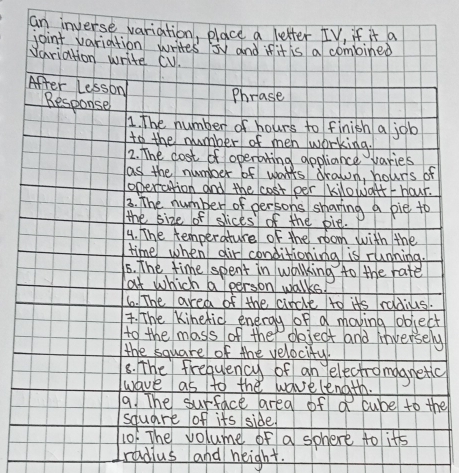 an inverse variation, place a letter IV, if it a
joint variation writes JV and if it is a combined
variation write CV.
After Lesson Response
Phrase
1. The number of hours to finish a job
to the number of men working.
2. The cost of operating appliance varies
as the number of watts drawn, hours of
operation and the cost per kilowatt-hour.
3. The number of persons sharing a pie to
the size of slices of the pie.
4. The temperature of the room with the
time when air conditioning is running.
5. The time spent in walking to the rate
at which a person walks.
6. The area of the circle to its radius.
7. The kinetic energy of a moving object
to the mass of the object and inversely
the square of the velocity.
8. The frequency of an electromagnetic
wave as to the wavelength.
9. The surface area of a cube to the
square of its side.
10. The volume of a sphere to its
radius and height.